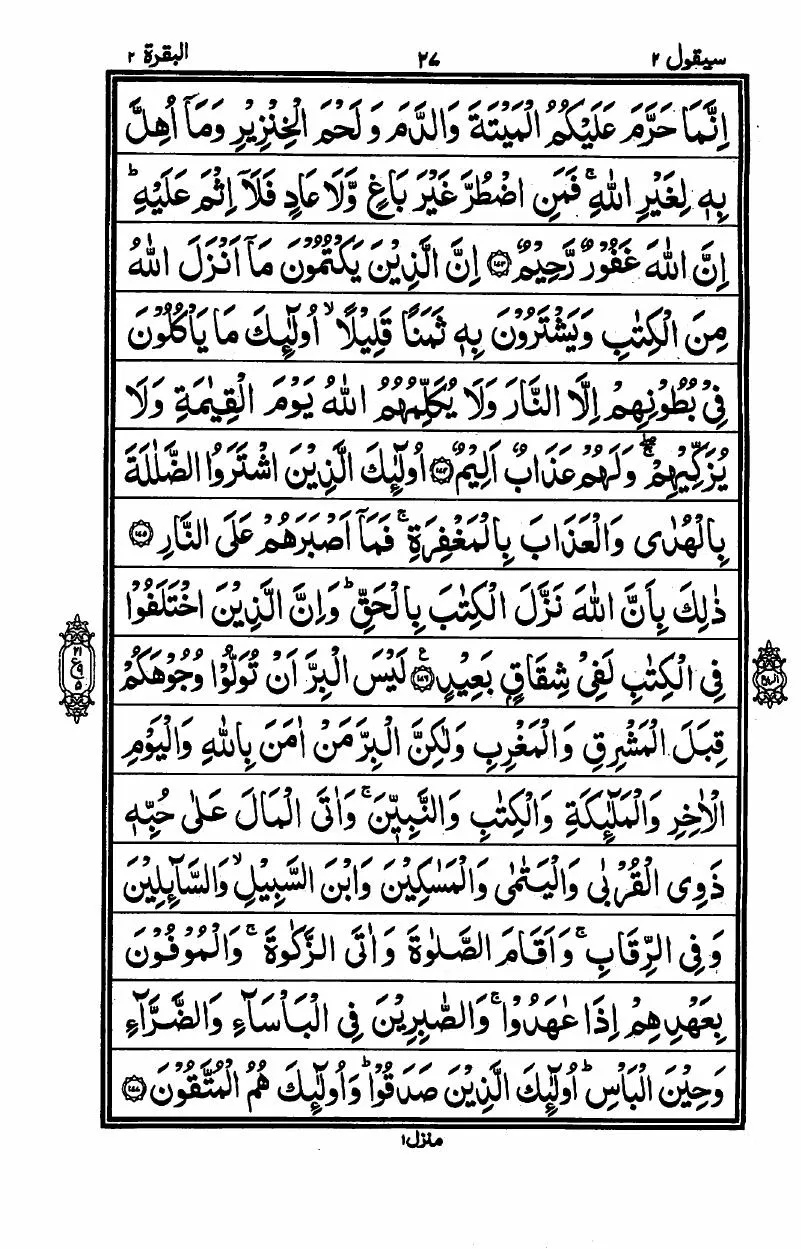 سيقول ٢ ٢٧ البقرة ٢
اِنَّمَا حَرَّمَ عَلَيْكُمُ الْمَيْتَةَ وَالدَّمَ وَلَحْمَ الْخِنْزِيْرِ وَمَاۤ اُهِلَّ
بِهٖ لِغَيْرِ اللّٰهِ ۚ فَمَنِ اضْطُرَّ غَيْرَ بَاغٍ وَّلَا عَادٍ فَلَاۤ اِثْمَ عَلَيْهِ ؕ
اِنَّ اللّٰهَ غَفُوْرٌ رَّحِيْمٌ ﴿۱۷۳﴾ اِنَّ الَّذِيْنَ يَكْتُمُوْنَ مَاۤ اَنْزَلَ اللّٰهُ
مِنَ الْكِتٰبِ وَيَشْتَرُوْنَ بِهٖ ثَمَنًا قَلِيْلًا ۙ اُولٰٓئِكَ مَا يَاْكُلُوْنَ
فِيْ بُطُوْنِهِمْ اِلَّا النَّارَ وَلَا يُكَلِّمُهُمُ اللّٰهُ يَوْمَ الْقِيٰمَةِ وَلَا
يُزَكِّيْهِمْ ۖۚ وَلَهُمْ عَذَابٌ اَلِيْمٌ ﴿۱۷۴﴾ اُولٰٓئِكَ الَّذِيْنَ اشْتَرَوُا الضَّلٰلَةَ
بِالْهُدٰى وَالْعَذَابَ بِالْمَغْفِرَةِ ۚ فَمَاۤ اَصْبَرَهُمْ عَلَى النَّارِ ﴿۱۷۵﴾
ذٰلِكَ بِاَنَّ اللّٰهَ نَزَّلَ الْكِتٰبَ بِالْحَقِّ ؕ وَاِنَّ الَّذِيْنَ اخْتَلَفُوْا
فِى الْكِتٰبِ لَفِيْ شِقَاقٍۭ بَعِيْدٍ ﴿۱۷۶﴾ ع لَيْسَ الْبِرَّ اَنْ تُوَلُّوْا وُجُوْهَكُمْ
قِبَلَ الْمَشْرِقِ وَالْمَغْرِبِ وَلٰكِنَّ الْبِرَّ مَنْ اٰمَنَ بِاللّٰهِ وَالْيَوْمِ
الْاٰخِرِ وَالْمَلٰٓئِكَةِ وَالْكِتٰبِ وَالنَّبِيّٖنَ ۚ وَاٰتَى الْمَالَ عَلٰى حُبِّهٖ
ذَوِى الْقُرْبٰى وَالْيَتٰمٰى وَالْمَسٰكِيْنَ وَابْنَ السَّبِيْلِ ۙ وَالسَّآئِلِيْنَ
وَفِى الرِّقَابِ ۚ وَاَقَامَ الصَّلٰوةَ وَاٰتَى الزَّكٰوةَ ۚ وَالْمُوْفُوْنَ
بِعَهْدِهِمْ اِذَا عٰهَدُوْا ۚ وَالصّٰبِرِيْنَ فِى الْبَاْسَآءِ وَالضَّرَّآءِ
وَحِيْنَ الْبَاْسِ ؕ اُولٰٓئِكَ الَّذِيْنَ صَدَقُوْا ؕ وَاُولٰٓئِكَ هُمُ الْمُتَّقُوْنَ ﴿۱۷۷﴾
٢١
ع ٩
٥
منزل ١